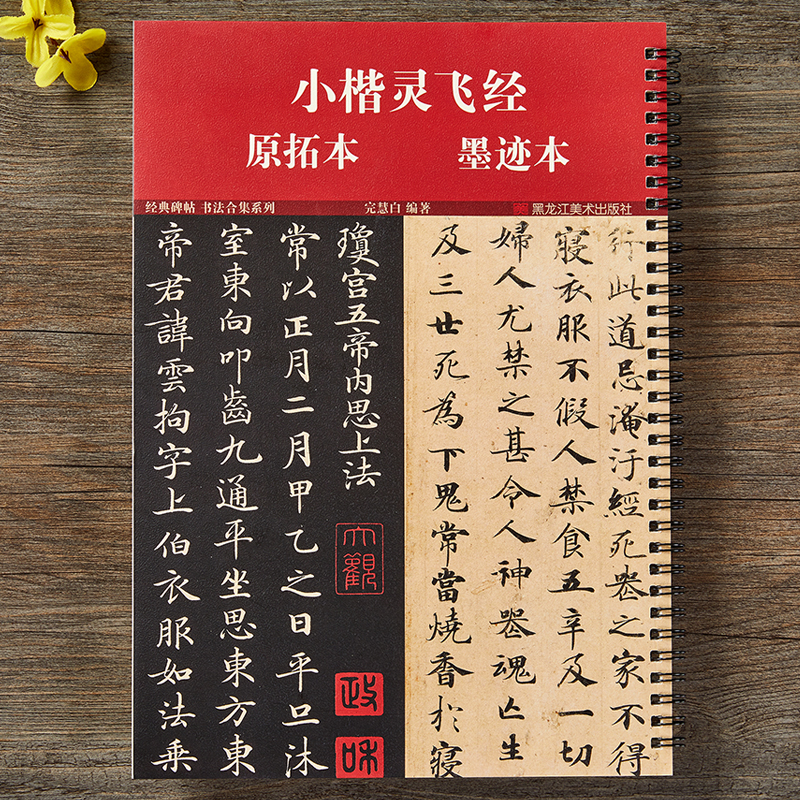 小楷灵飞经
原拓本 墨迹本
经典碑帖 书法合集系列 完慧白 编著 黑龙江美术出版社
行此道忌淹汙經死喪之家不得
寢衣服不假人禁食五辛及一切
婦人尤禁之甚令人神喪魂亡生
及三世死為下鬼常當燒香於寢
瓊宫五帝内思上法
大觀
政
和
常以正月二月甲乙之日平旦沐
室東向叩齒九通平坐思東方東
帝君諱雲拘字上伯衣服如法乘